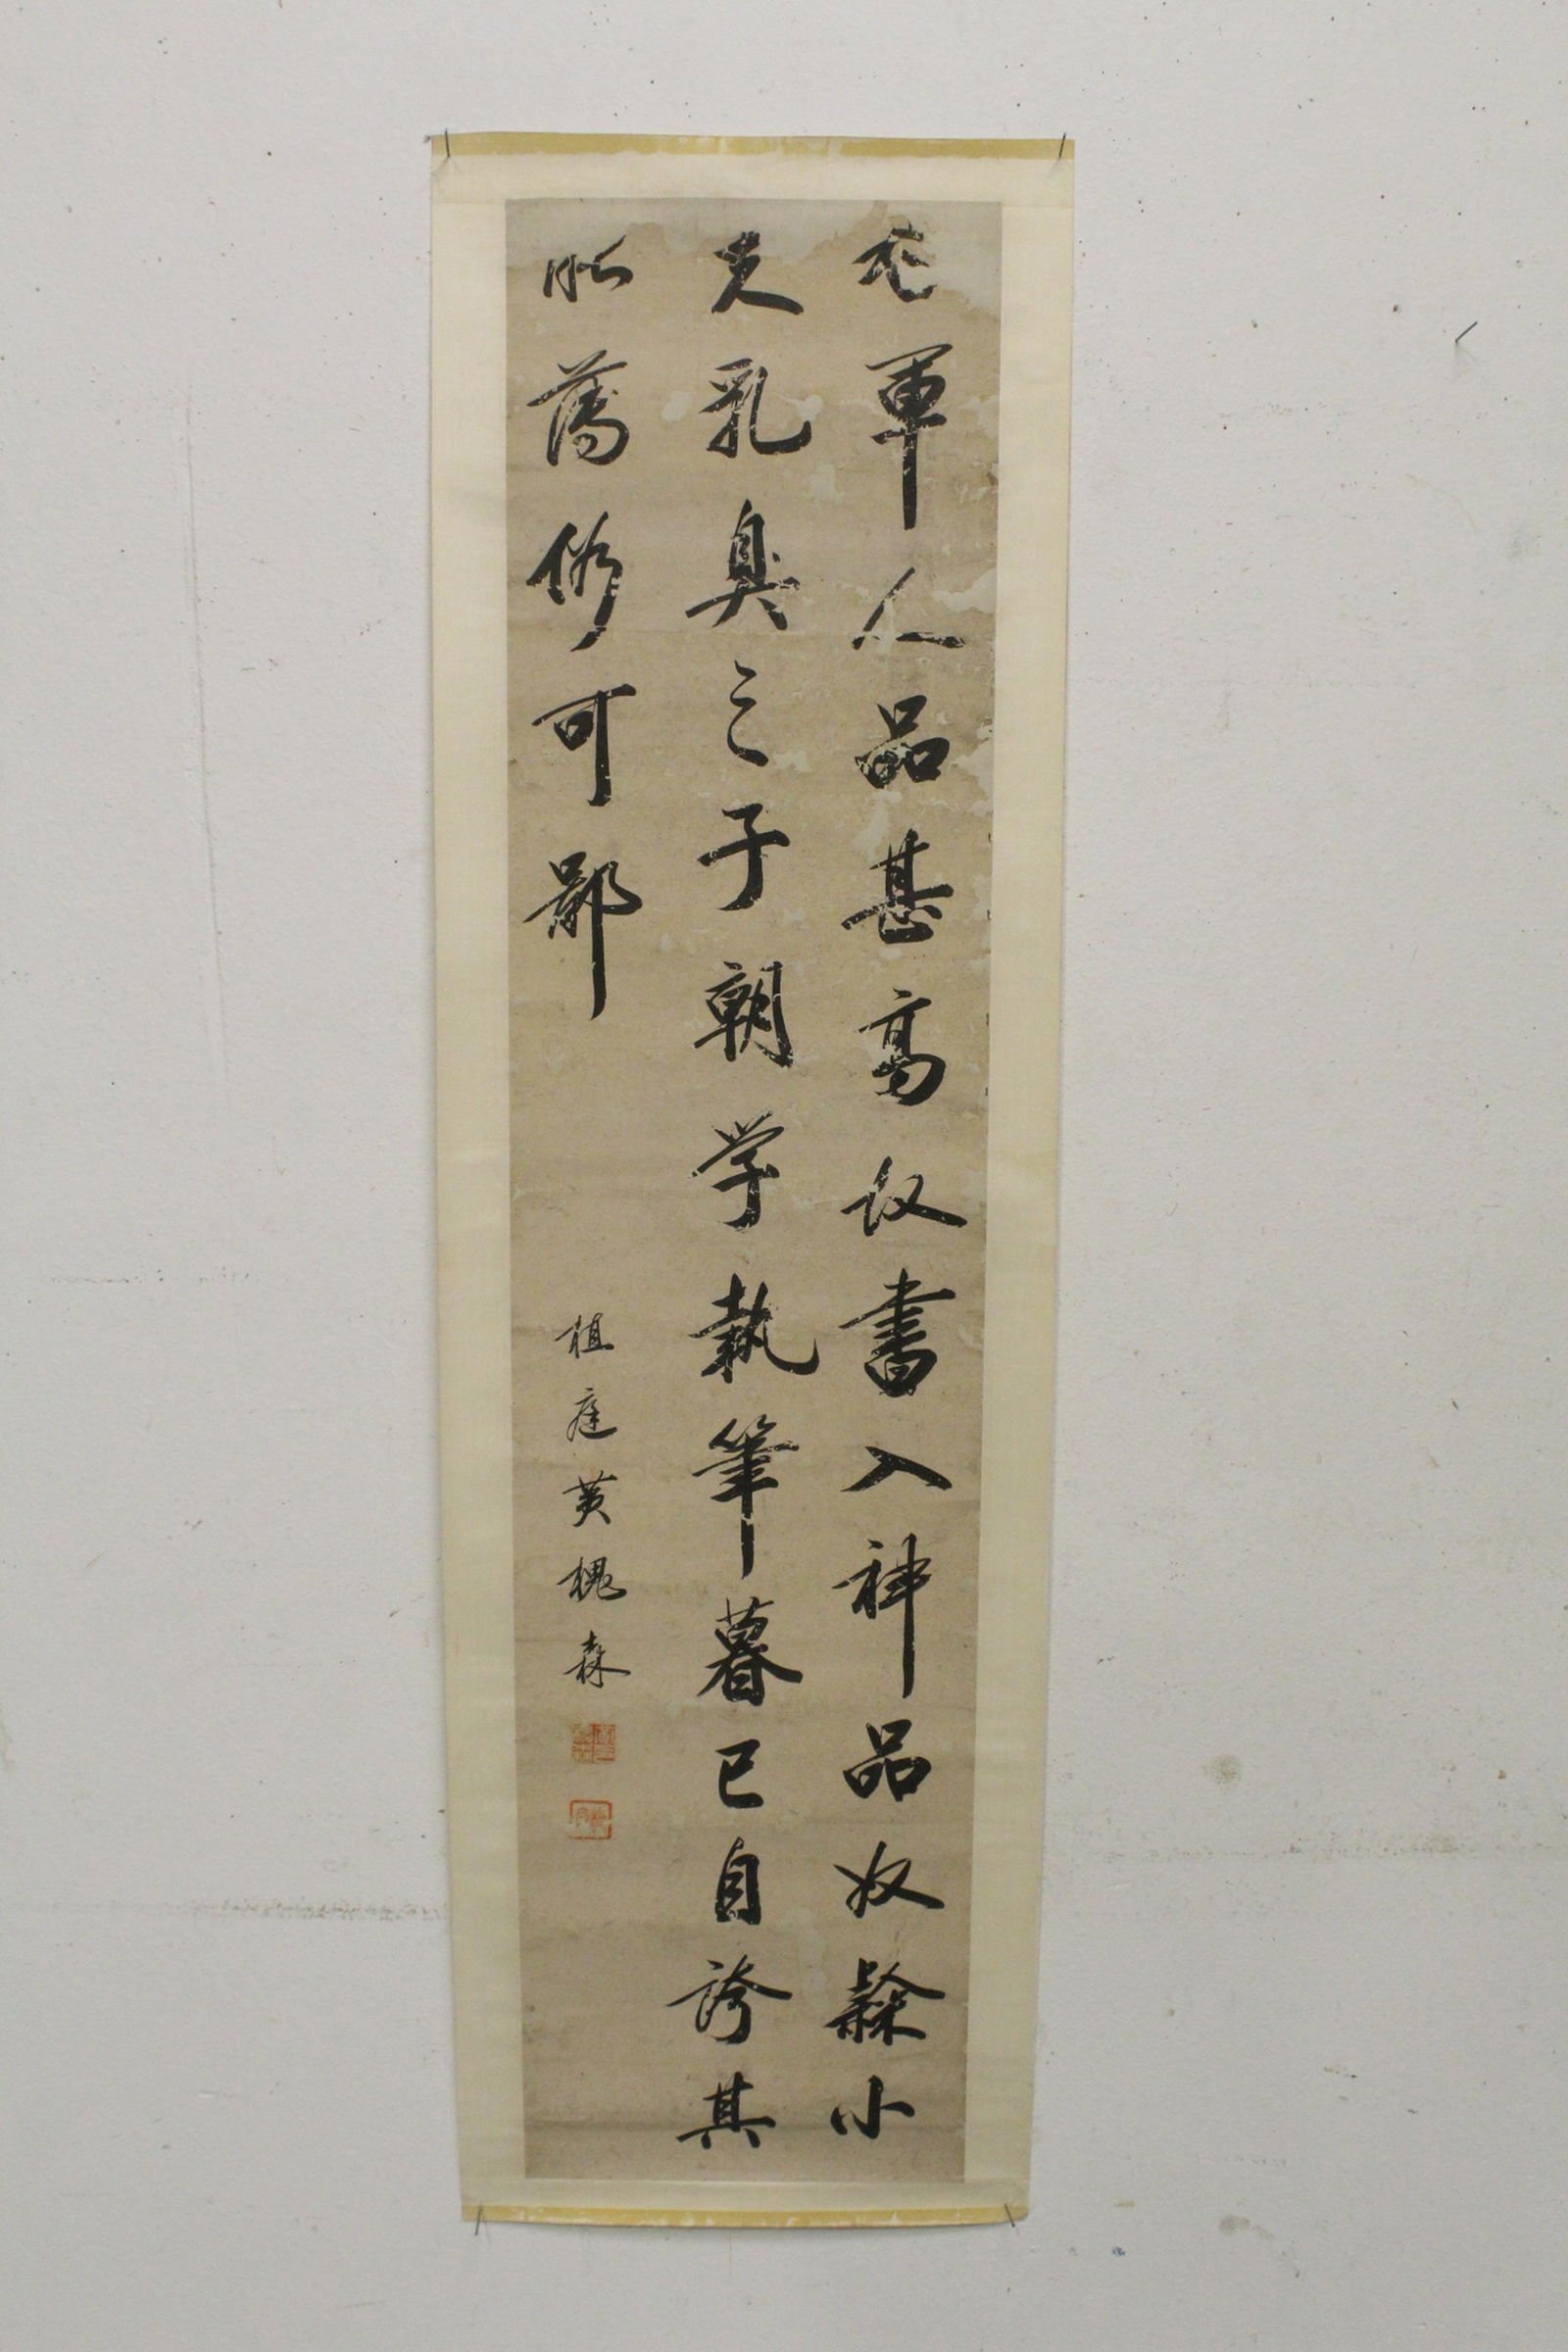 右軍人品甚高故書入神品奴隸小
夫乳臭之子朝学執筆暮已自誇其
能薄俗可鄙
植庭黃槐森